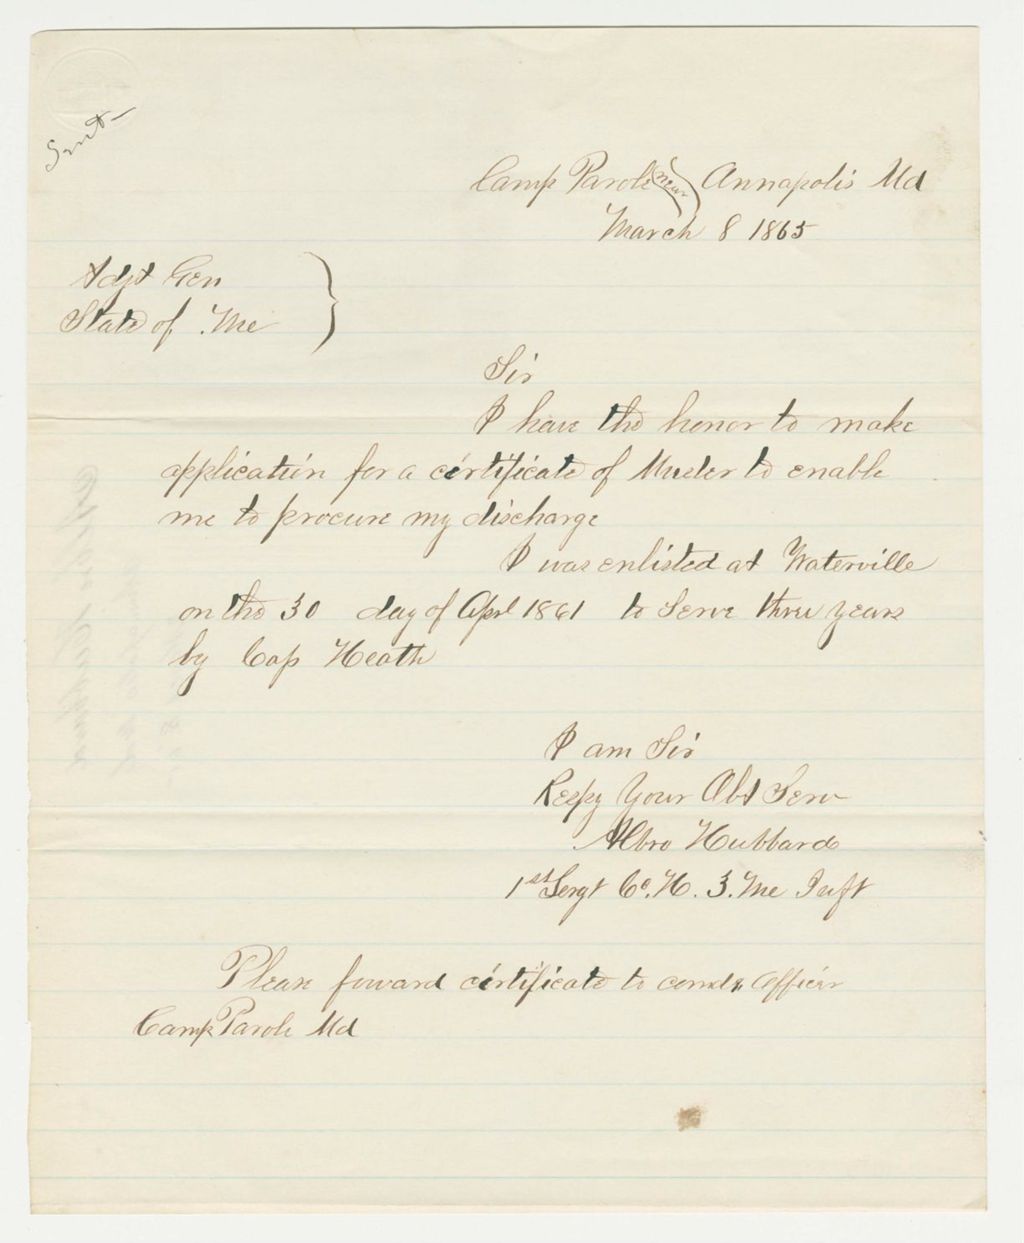 Sent
Camp Parole (near) Annapolis Md
March 8 1865
Adjt Gen
State of Me
Sir
I have the honor to make
application for a certificate of Muster to enable
me to procure my discharge
I was enlisted at Waterville
on the 30 day of Aprl 1861 to Serve three years
by Cap Heath
I am Sir
Respy Your Obt Serv
Albro Hubbard
1st Sergt Co. H. 3. Me Inft
Please foward certificate to comdg officer
Camp Parole Md